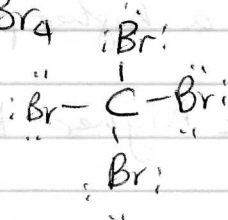 Br4
:Br:
:Br-C-Br:
:Br: